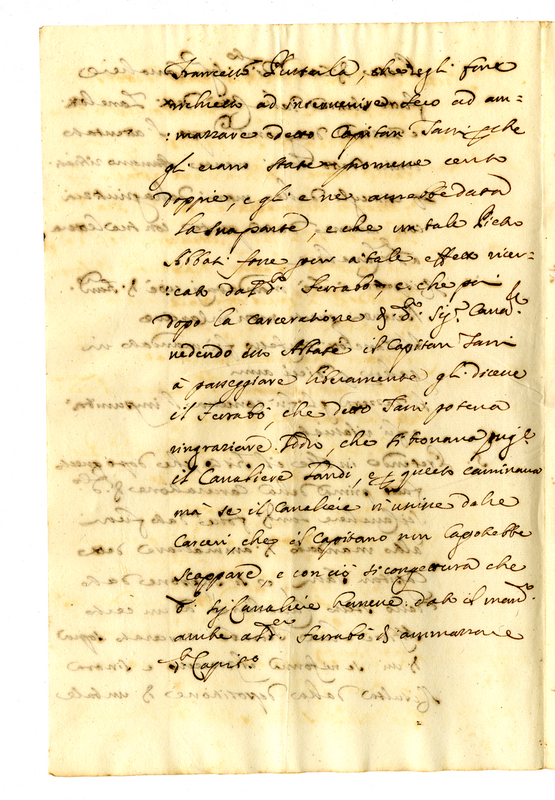 Francesco che egli fosse
richiesto ad intervenire seco ad am=
:mazzare detto Capitan Tarri, che
gl'erano state promesse cento
doppie, e gl'e ne averebbe data
la sua parte, e che un tale Pietro
Abbati fosse pur a tale effetto ricer=
:cato dal d.º Ferrabò, e che poi
dopo la carceratione di d.º Sig.r Cava.re
vedendo d.to Abbate il Capitan Tarri
à passeggiare liberamente gli diceva
il Ferrabò, che detto Tarri poteva
ringraziare Iddio, che si trovava
il Cavaliere Fandi, e questo caminava
mà se il Cavaliere n'usciva dalle
Carceri, che il Capitano non la potrebbe
scappare, e con ciò si congettura che
d.º Sig. Cavaliere haveva dato il man.º
anche al d.º Ferrabò di ammazzare
d.º Capit.º